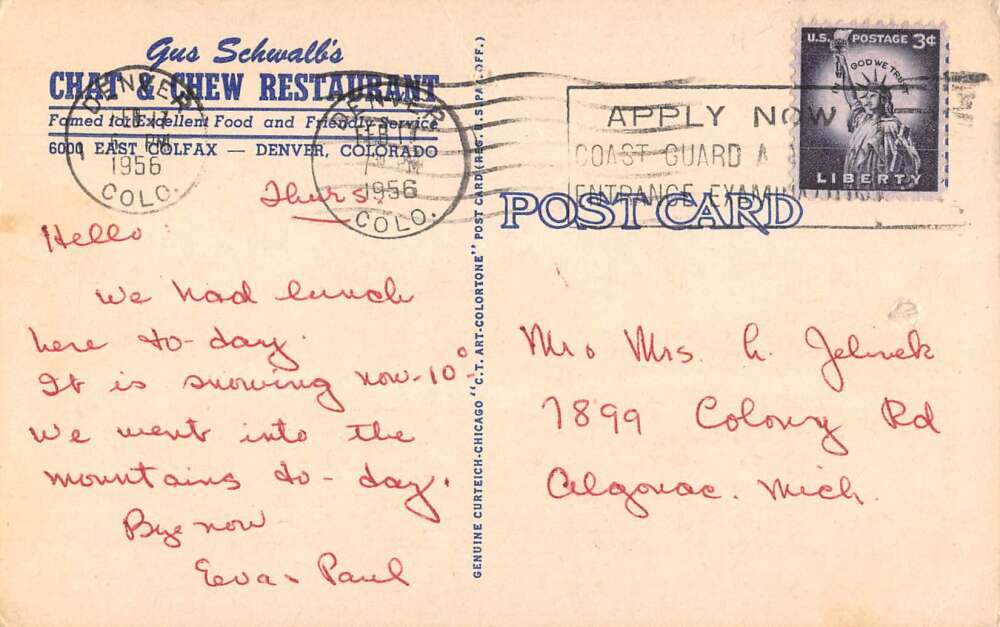 Gus Schwalb's
CHAT & CHEW RESTAURANT
Famed for Excellent Food and Friendly Service
6000 EAST COLFAX — DENVER, COLORADO
DENVER
1956
COLO.
DENVER
FEB
1956
COLO.
APPLY NOW
COAST GUARD A
ENTRANCE EXAMINATION
U.S. POSTAGE 3¢
IN GOD WE TRUST
LIBERTY
POST CARD
GENUINE CURTEICH-CHICAGO "C.T. ART-COLORTONE" POST CARD (REG. U.S. PAT. OFF.)
Thurs.
Hello
We had lunch
here to-day.
It is snowing now-10°
We went into the
mountains to-day.
Bye now
Eeva & Paul
Mr & Mrs. G. Jelinek
7899 Colony Rd
Algonac. Mich.